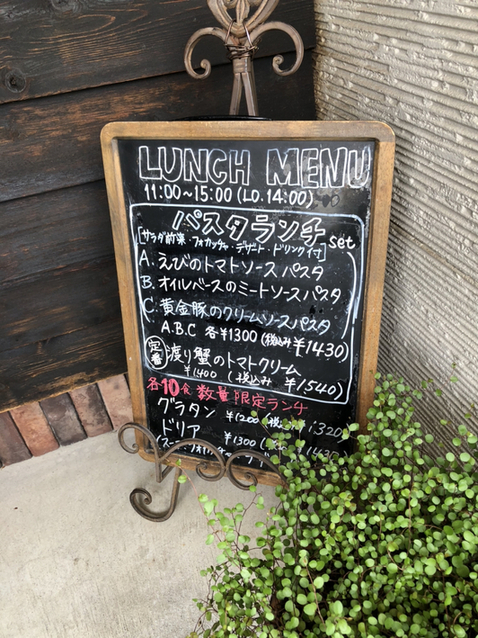 LUNCH MENU
11:00~15:00 (LO.14:00)
パスタランチ set
[サラダ前菜・フォカッチャ・デザート・ドリンク付]
A. えびのトマトソースパスタ
B. オイルベースのミートソースパスタ
C. 黄金豚のクリームソースパスタ
A.B.C 各¥1300 (税込み ¥1430)
定番 渡り蟹のトマトクリーム
¥1400 (税込み ¥1540)
各10食 数量限定ランチ
グラタン ¥1200 (税込
ドリア ¥1300 (